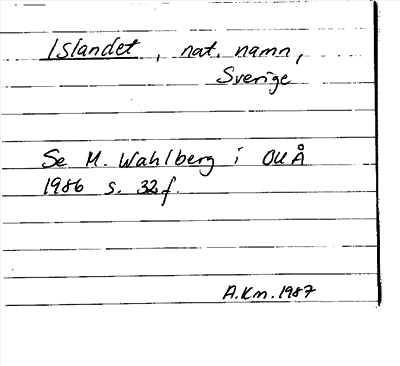 Islandet, nat. namn,
Sverige
Se M. Wahlberg i OUÅ
1986 s. 32 f.
A.Km. 1987